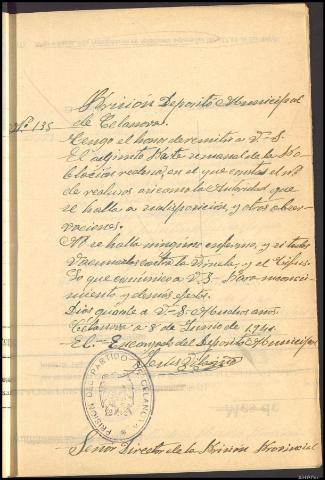 Prisión Deposito Municipal
de Celanova.
Nº. 135
Tengo el honor de remitir a V.S.
El adjunto Parte semanal de la Po-
blacion reclusa, en el que consta el nº.
de reclusos asi como la Autoridad, que
se halla a su disposición, y otras obser-
vaciones.
No se halla ningun enfermo, y si todos
vacunados contra la Viruela, y el Tifus.
Lo que comunico a V.S. Para su conoci-
miento y demas efectos.
Dios guarde a V-S. Muchos años.
Celanova a 8 de Junio de 1941.
El Encargado del Deposito Municipal
PRISION DEL PARTIDO DE CELANOVA
Señor Director de la Prisión Provincial